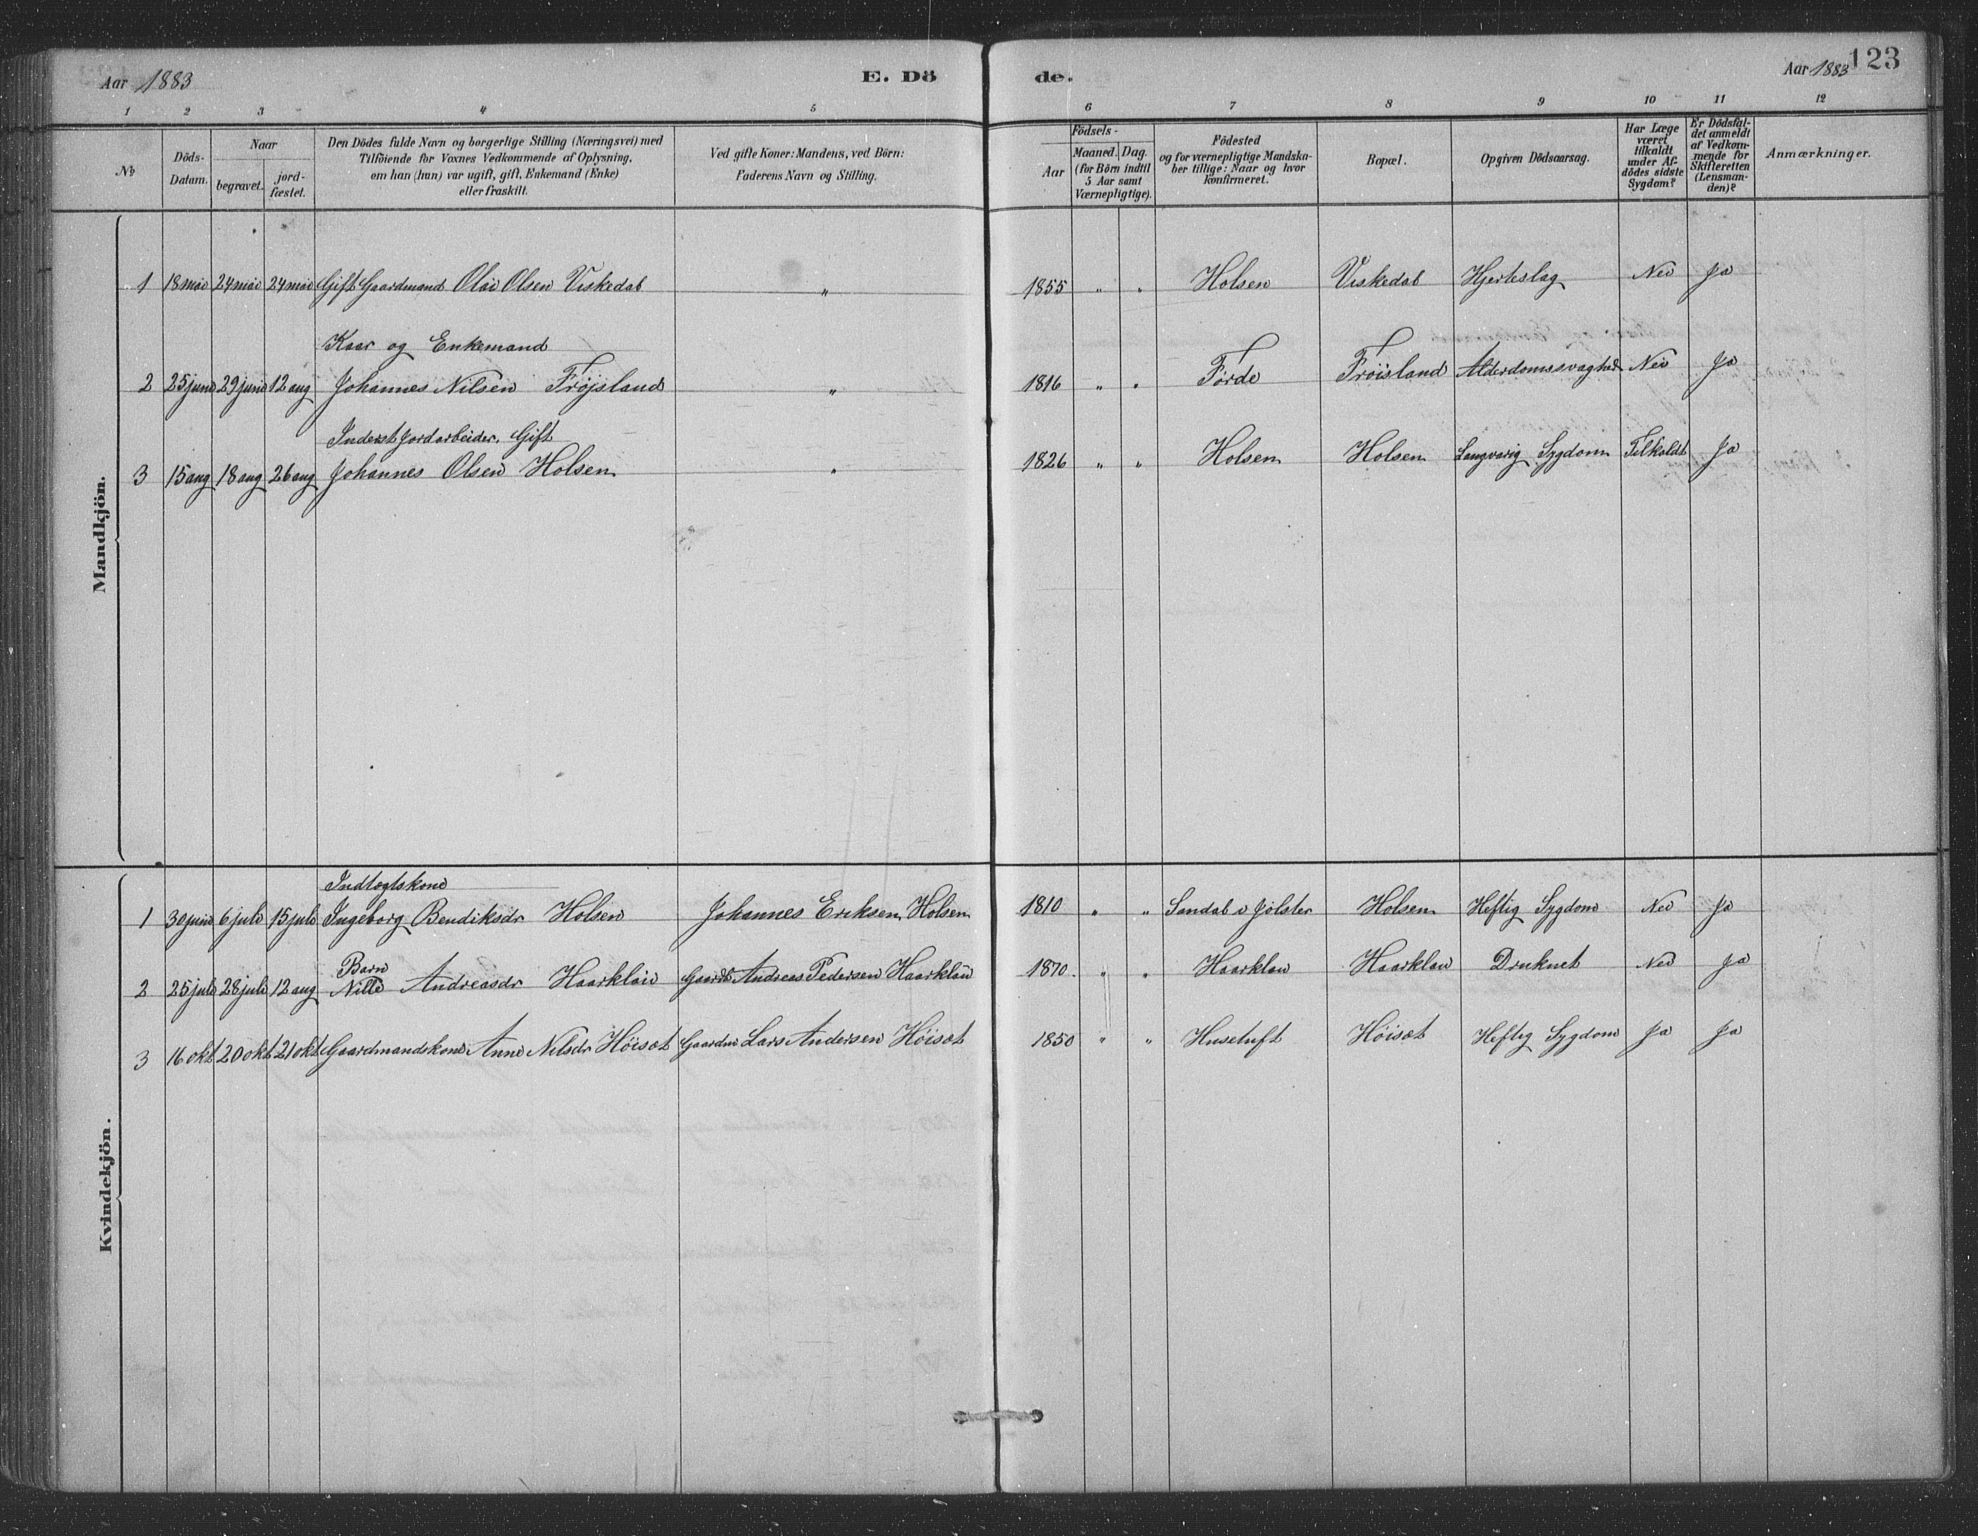 Aar 1883 E. Dö de. Aar 1883 123
1 2 3 4 5 6 7 8 9 10 11 12
No
Döds-Datum.
Naar
begravet.
jord-fæstet.
Den Dödes fulde Navn og borgerlige Stilling (Næringsvei) med
Tilföiende for Voxnes Vedkommende af Oplysning,
om han (hun) var ugift, gift, Enkemand (Enke)
eller fraskilt.
Ved gifte Koner: Mandens, ved Börn:
Faderens Navn og Stilling.
Födsels-
Aar
Maaned. Dag.
(for Börn indtil
5 Aar samt
Værnepligtige).
Födested
og for værnepligtige Mandska-
ber tillige: Naar og hvor
konfirmeret.
Bopæl.
Opgiven Dödsaarsag.
Har Læge
været
tilkaldt
under Af-
dödes sidste
Sygdom?
Er Dödsfal-
det anmeldt
af Vedkom-
mende for
Skifteretten
(Lensman-
den)?
Anmærkninger.
Mandkjön.
1 18 mai 24 mai 24 mai Gift Gaardmand Olai Olsen Viskedal " 1855 " " Holsen Viskedal Hjerteslag Nei Ja
Kaar og Enkemand
2 25 juni 29 juni 12 aug Johannes Nilsen Frøjsland " 1816 " " Førde Frøisland Alderdomssvaghed Nei Ja
Inderst Jordarbeider. Gift
3 15 aug 18 aug 26 aug Johannes Olsen Holsen " 1826 " " Holsen Holsen Langvarig Sygdom Tilkaldt Ja
Kvindekjön.
Indtægtskone
1 30 juni 6 juli 15 juli Ingeborg Bendiksdr Holsen Johannes Eriksen Holsen 1810 " " Sandal i Jølster Holsen Heftig Sygdom Nei Ja
Barn
2 25 juli 28 juli 12 aug Nille Andreasdr Haarklau Gaardb Andreas Pedersen Haarklau 1870. " " Haarklau Haarklau Druknet Nei Ja
3 16 okt 20 okt 21 okt Gaardmandskone Anne Nilsdr Høisæt Gaardm Lars Andersen Høisæt 1850 " " Husetuft Høisæt Heftig Sygdom Ja Ja